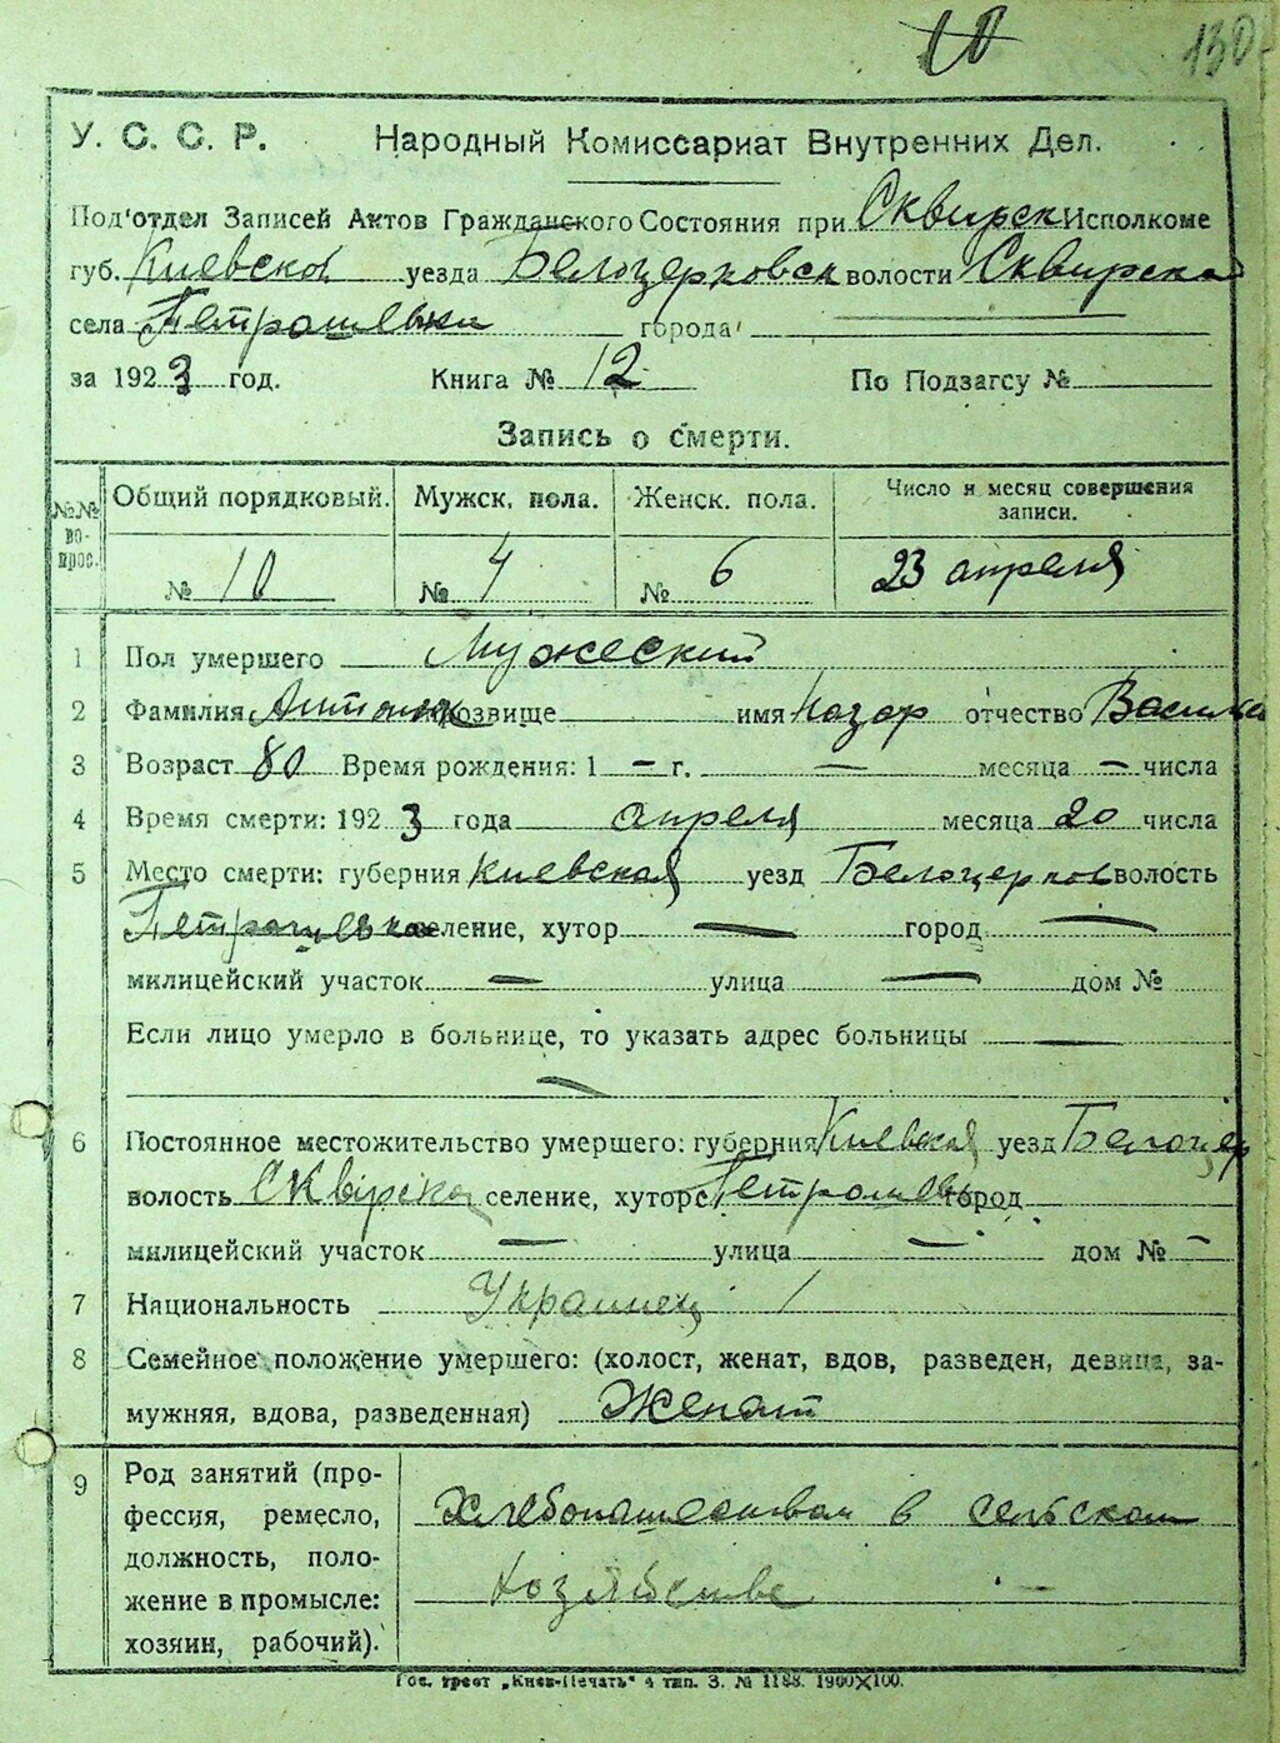 10 130
У. С. С. Р. Народный Комиссариат Внутренних Дел.
Под'отдел Записей Актов Гражданского Состояния при Сквирск Исполкоме
губ. Киевской уезда Белоцерковск волости Сквирска
села Петрашевки города
за 1923 год. Книга № 12 По Подзагсу №
Запись о смерти.
№№ вопрос. Общий порядковый. Мужск. пола. Женск. пола. Число и месяц совершения записи.
№ 10 № 4 № 6 23 апреля
1 Пол умершего Мужеский
2 Фамилия Антонюк прозвище имя Назар отчество Василье
3 Возраст 80 Время рождения: 1 — г. — месяца — числа
4 Время смерти: 1923 года апреля месяца 20 числа
5 Место смерти: губерния Киевская уезд Белоцерков волость
Петрашевка селение, хутор — город —
милицейский участок — улица — дом №
Если лицо умерло в больнице, то указать адрес больницы —
—
6 Постоянное местожительство умершего: губерния Киевская уезд Белоцер
волость Сквірская селение, хутор с. Петрашевк город
милицейский участок — улица — дом № —
7 Национальность Украинец
8 Семейное положение умершего: (холост, женат, вдов, разведен, девица, за-
мужняя, вдова, разведенная) Женат
9 Род занятий (про-
фессия, ремесло,
должность, поло-
жение в промысле:
хозяин, рабочий).
Хлебопашеством в сельском
хозяйстве —
Гос. трест „Киев-Печать" 4 тип. З. № 1188. 1900×100.